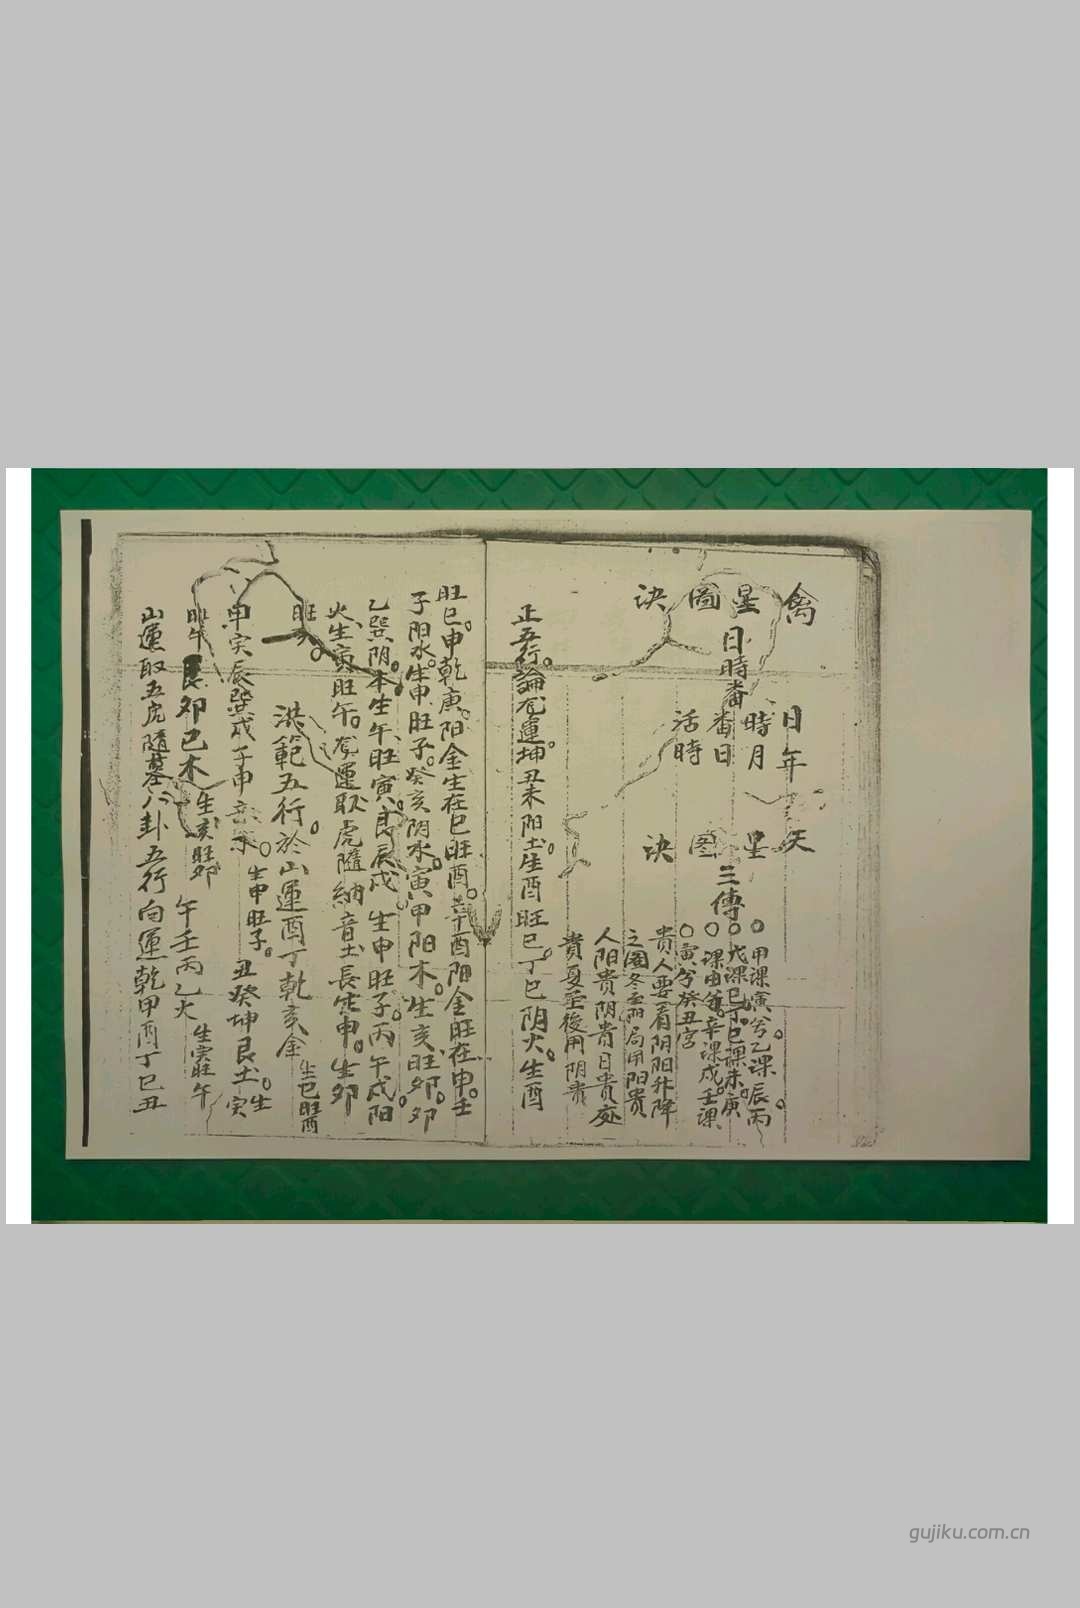 禽星圖訣
日時番
日年
時月
番日
活時
天星图訣
三傳
甲課寅兮乙課辰丙
戊課巳丁巳課未庚
課由 辛課戍壬課
寅兮癸丑宮
貴人要看阴阳升降
之圖冬至 局用阳贵
人阳贵阴贵日贵处
貴夏至後用阴贵
正五行論 運坤丑未阳土生酉旺巳丁巳阴火生酉
旺巳申乾庚阳金生在巳旺酉辛酉阳金旺在申壬
子阳水生申旺子癸亥阴水寅甲阳木生亥旺卯卯
乙巽阴木生午旺寅艮辰戍生申旺子丙午戍阳
火生寅旺午 運取虎隨納音土長生申生卯
旺亥
洪範五行於山運酉丁乾亥金生巳旺酉
甲寅辰巽戍子申辛水生申旺子丑癸坤艮土生寅
旺午艮卯巳木生亥旺卯午壬丙乙火生寅旺午
山運取五虎隨墓八卦五行向運乾甲酉丁巳丑
gujiku.com.cn